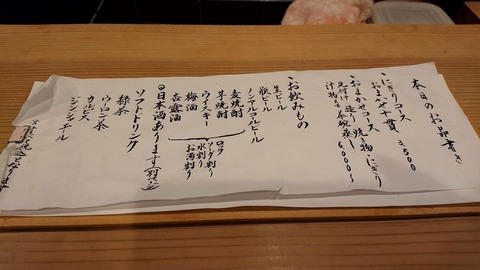 本日のお品書き
・にぎりコース
おまかせ十貫 3,500
・おまかせコース
先付け 造り 焼き物 にぎり
汁物 茶碗蒸し 6,000〜
・お飲みもの
生ビール
瓶ビール
ノンアルコールビール
麦焼酎
芋焼酎
ウイスキー
梅酒
ロック
ソーダ割り
水割り
お湯割り
◎日本酒あります(別ページ)
ソフトドリンク
緑茶
ウーロン茶
カルピス
ジンジャエール